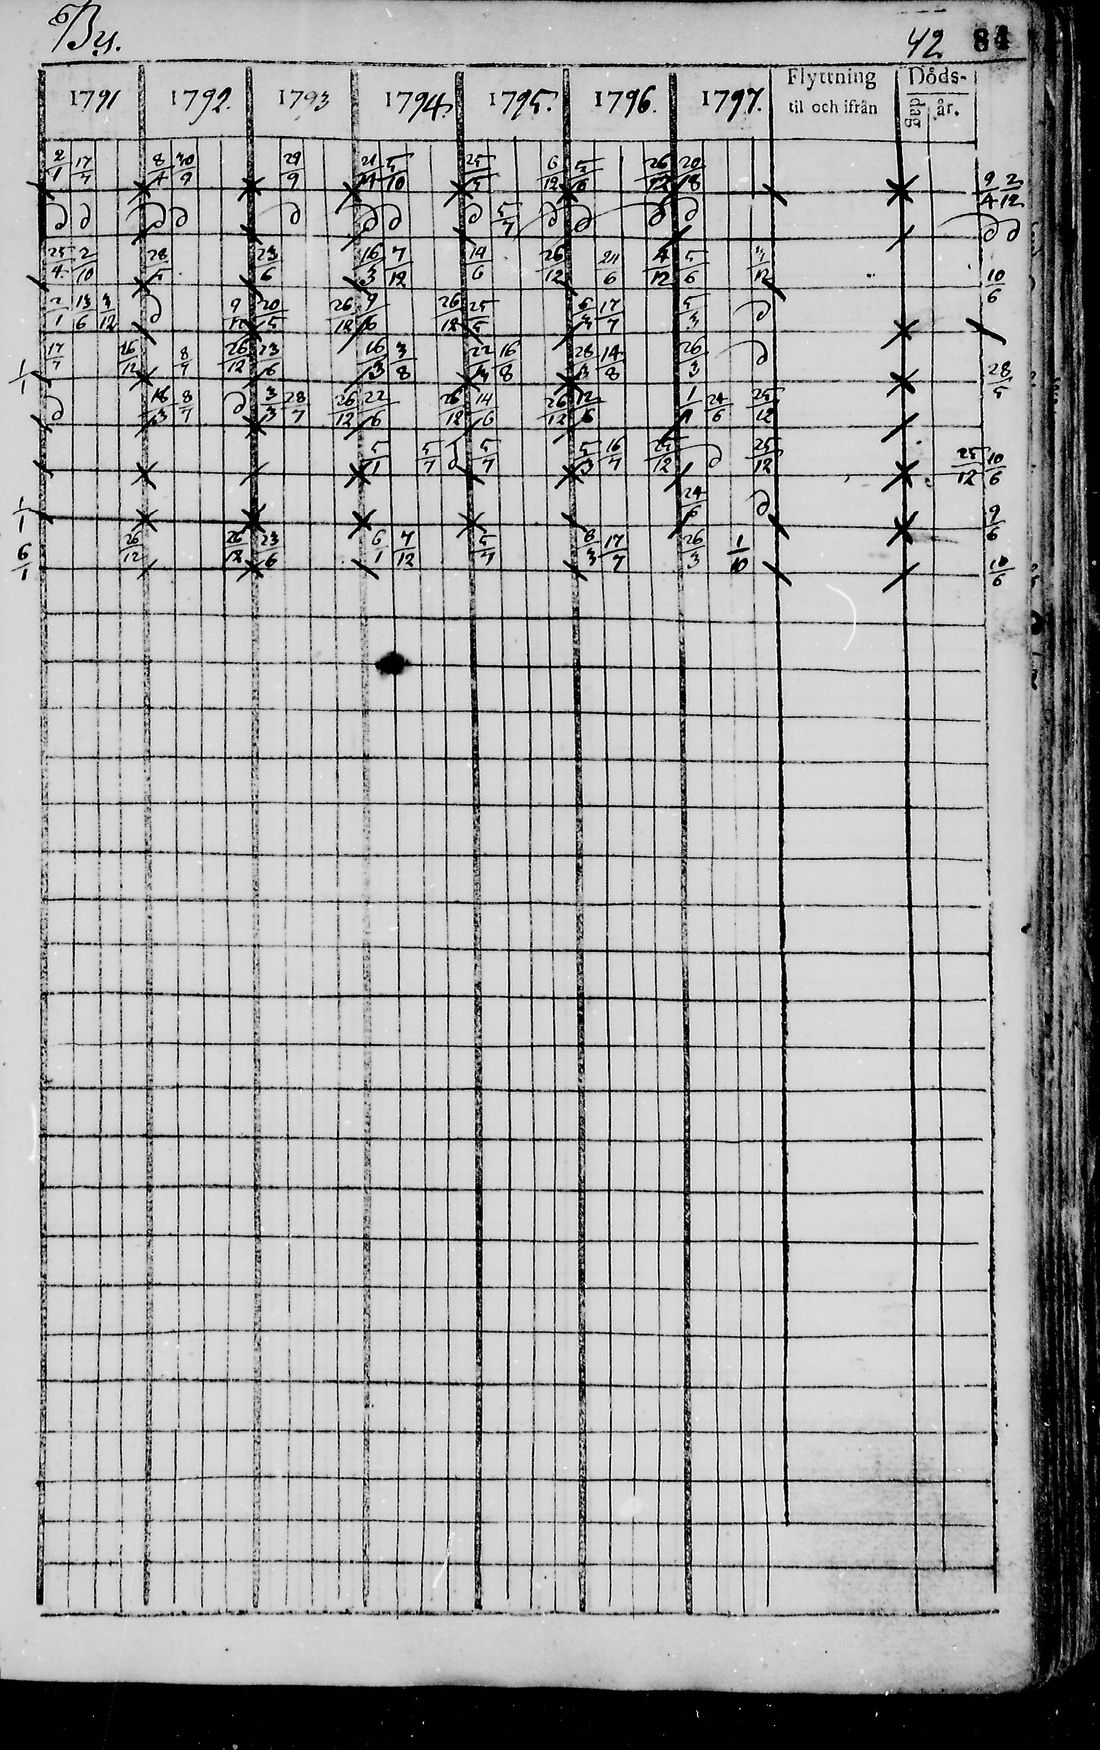 By. 42 84
1791 1792. 1793 1794. 1795. 1796. 1797. Flyttning til och ifrån Döds- dag år.
2/1 17/7 8/4 30/9 29/9 21/4 5/10 25/5 6/12 26/12 20/18 9/4 2/12
∂ ∂ ∂ ∂ ∂ ∂ ∂ ∂ 5/7 ∂ ∂ ∂ ∂ ∂ ∂
25/4 2/10 28/5 23/6 16/3 7/12 14/6 26/12 24/6 4/12 5/6 10/6
2/1 13/6 ∂ 9/12 20/5 26/12 9/6 26/12 25/5 6/3 17/7 5/3 ∂
1/1 17/7 26/12 8/7 26/12 23/6 16/3 3/8 22/3 16/8 28/3 14/8 26/3 ∂ 28/5
∂ 18/3 8/7 ∂ 3/3 28/7 26/12 22/6 26/12 14/6 26/12 12/6 24/6 25/12
5/1 5/7 ∂ 5/7 5/3 16/7 25/12 ∂ 25/12 25/12 10/6
1/1 24/6 ∂ 9/6
6/1 26/12 26/12 23/6 6/1 7/12 5/7 6/3 17/7 26/3 1/10 10/6